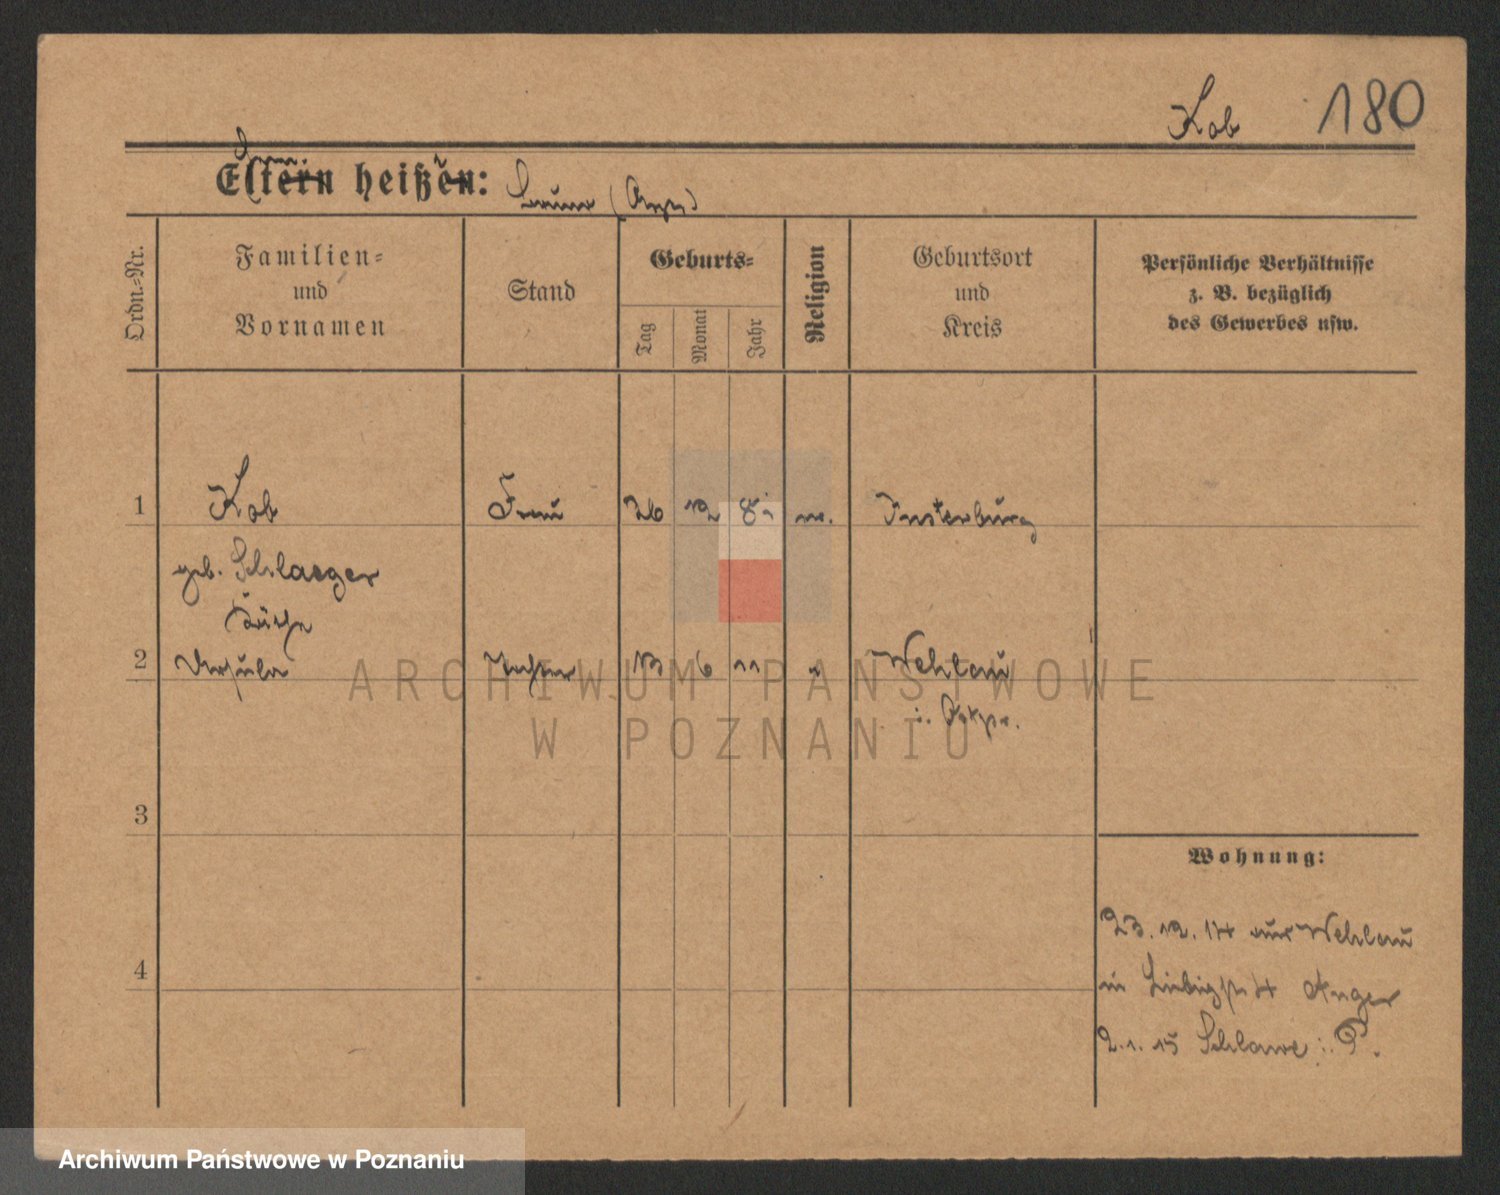 Kob 180
Eltern heißen:
Ordn.-Nr.
Familien-
und
Vornamen
Stand
Geburts-
Tag
Monat
Jahr
Religion
Geburtsort
und
Kreis
Persönliche Verhältnisse
z. B. bezüglich
des Gewerbes usw.
1 Kob Frau 26 12 Insterburg
geb. Schlaeger
Käthe
2 Ursula Tochter 13 6 11 Wehlau
i. Ostpr.
3
Wohnung:
23.12.14 aus Wehlau
4
in Liebigstr 4 Anger
2.1.15 Schlawe i. P.
ARCHIWUM PAŃSTWOWE
W POZNANIU
Archiwum Państwowe w Poznaniu